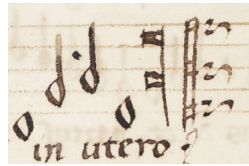 in utero